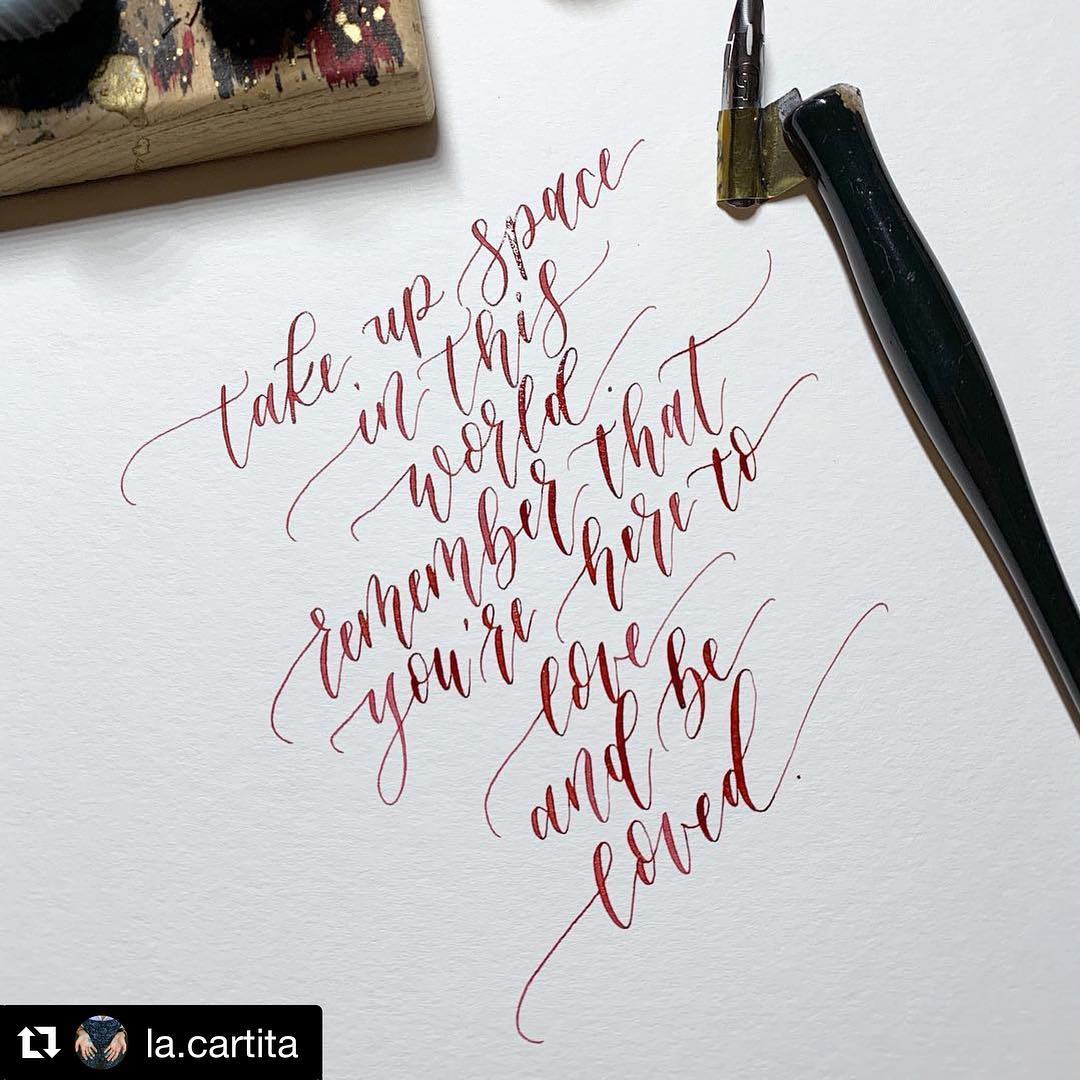 take up space
in this
world.
remember that
you're here to
love
and be
loved.
la.cartita